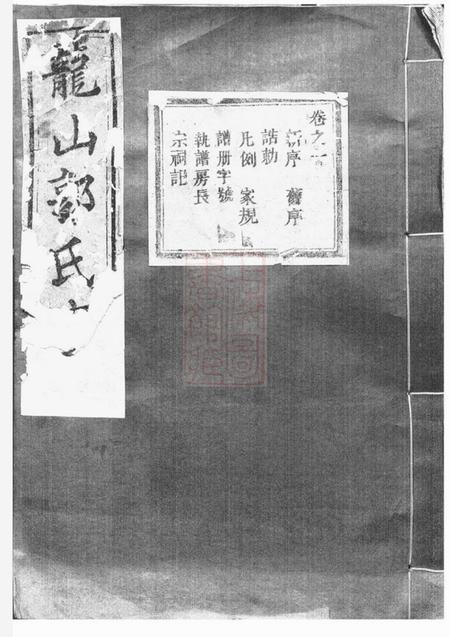 卷之首
新序 舊序
誥勅
凡例 家規
譜册字號
執譜房長
宗祠記
龍山郭氏